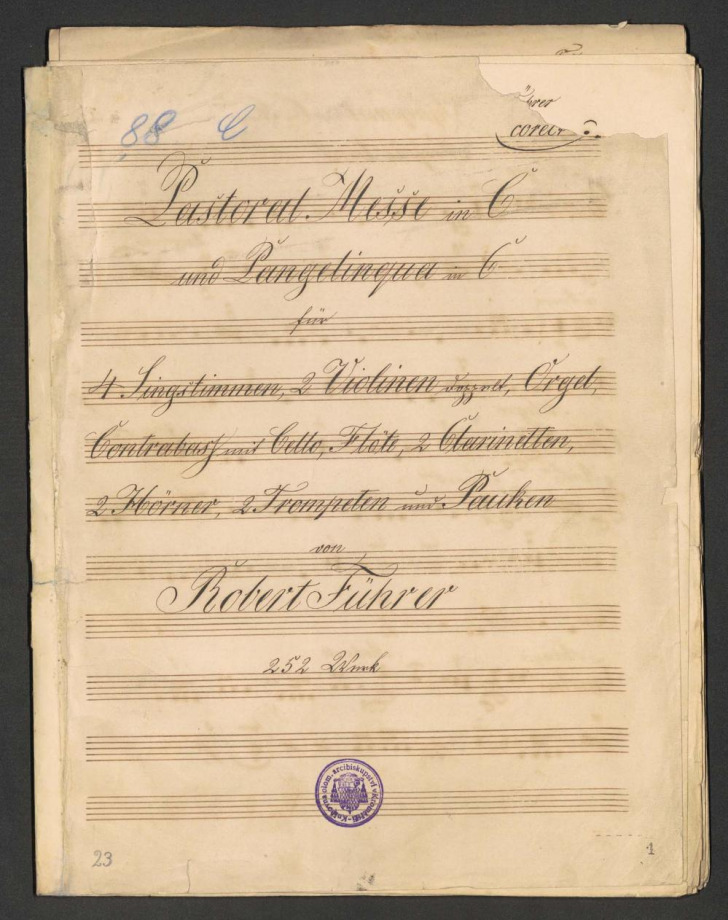 88 C
corect
Pastoral Messe in C
und Pangelinqua in C
für
4 Singstimmen, 2 Violinen doppelt, Orgel,
Contrabass mit Cello, Flöte, 2 Clarinetten,
2 Hörner, 2 Trompeten und Pauken
von
Robert Führer
252 Werk
23
1